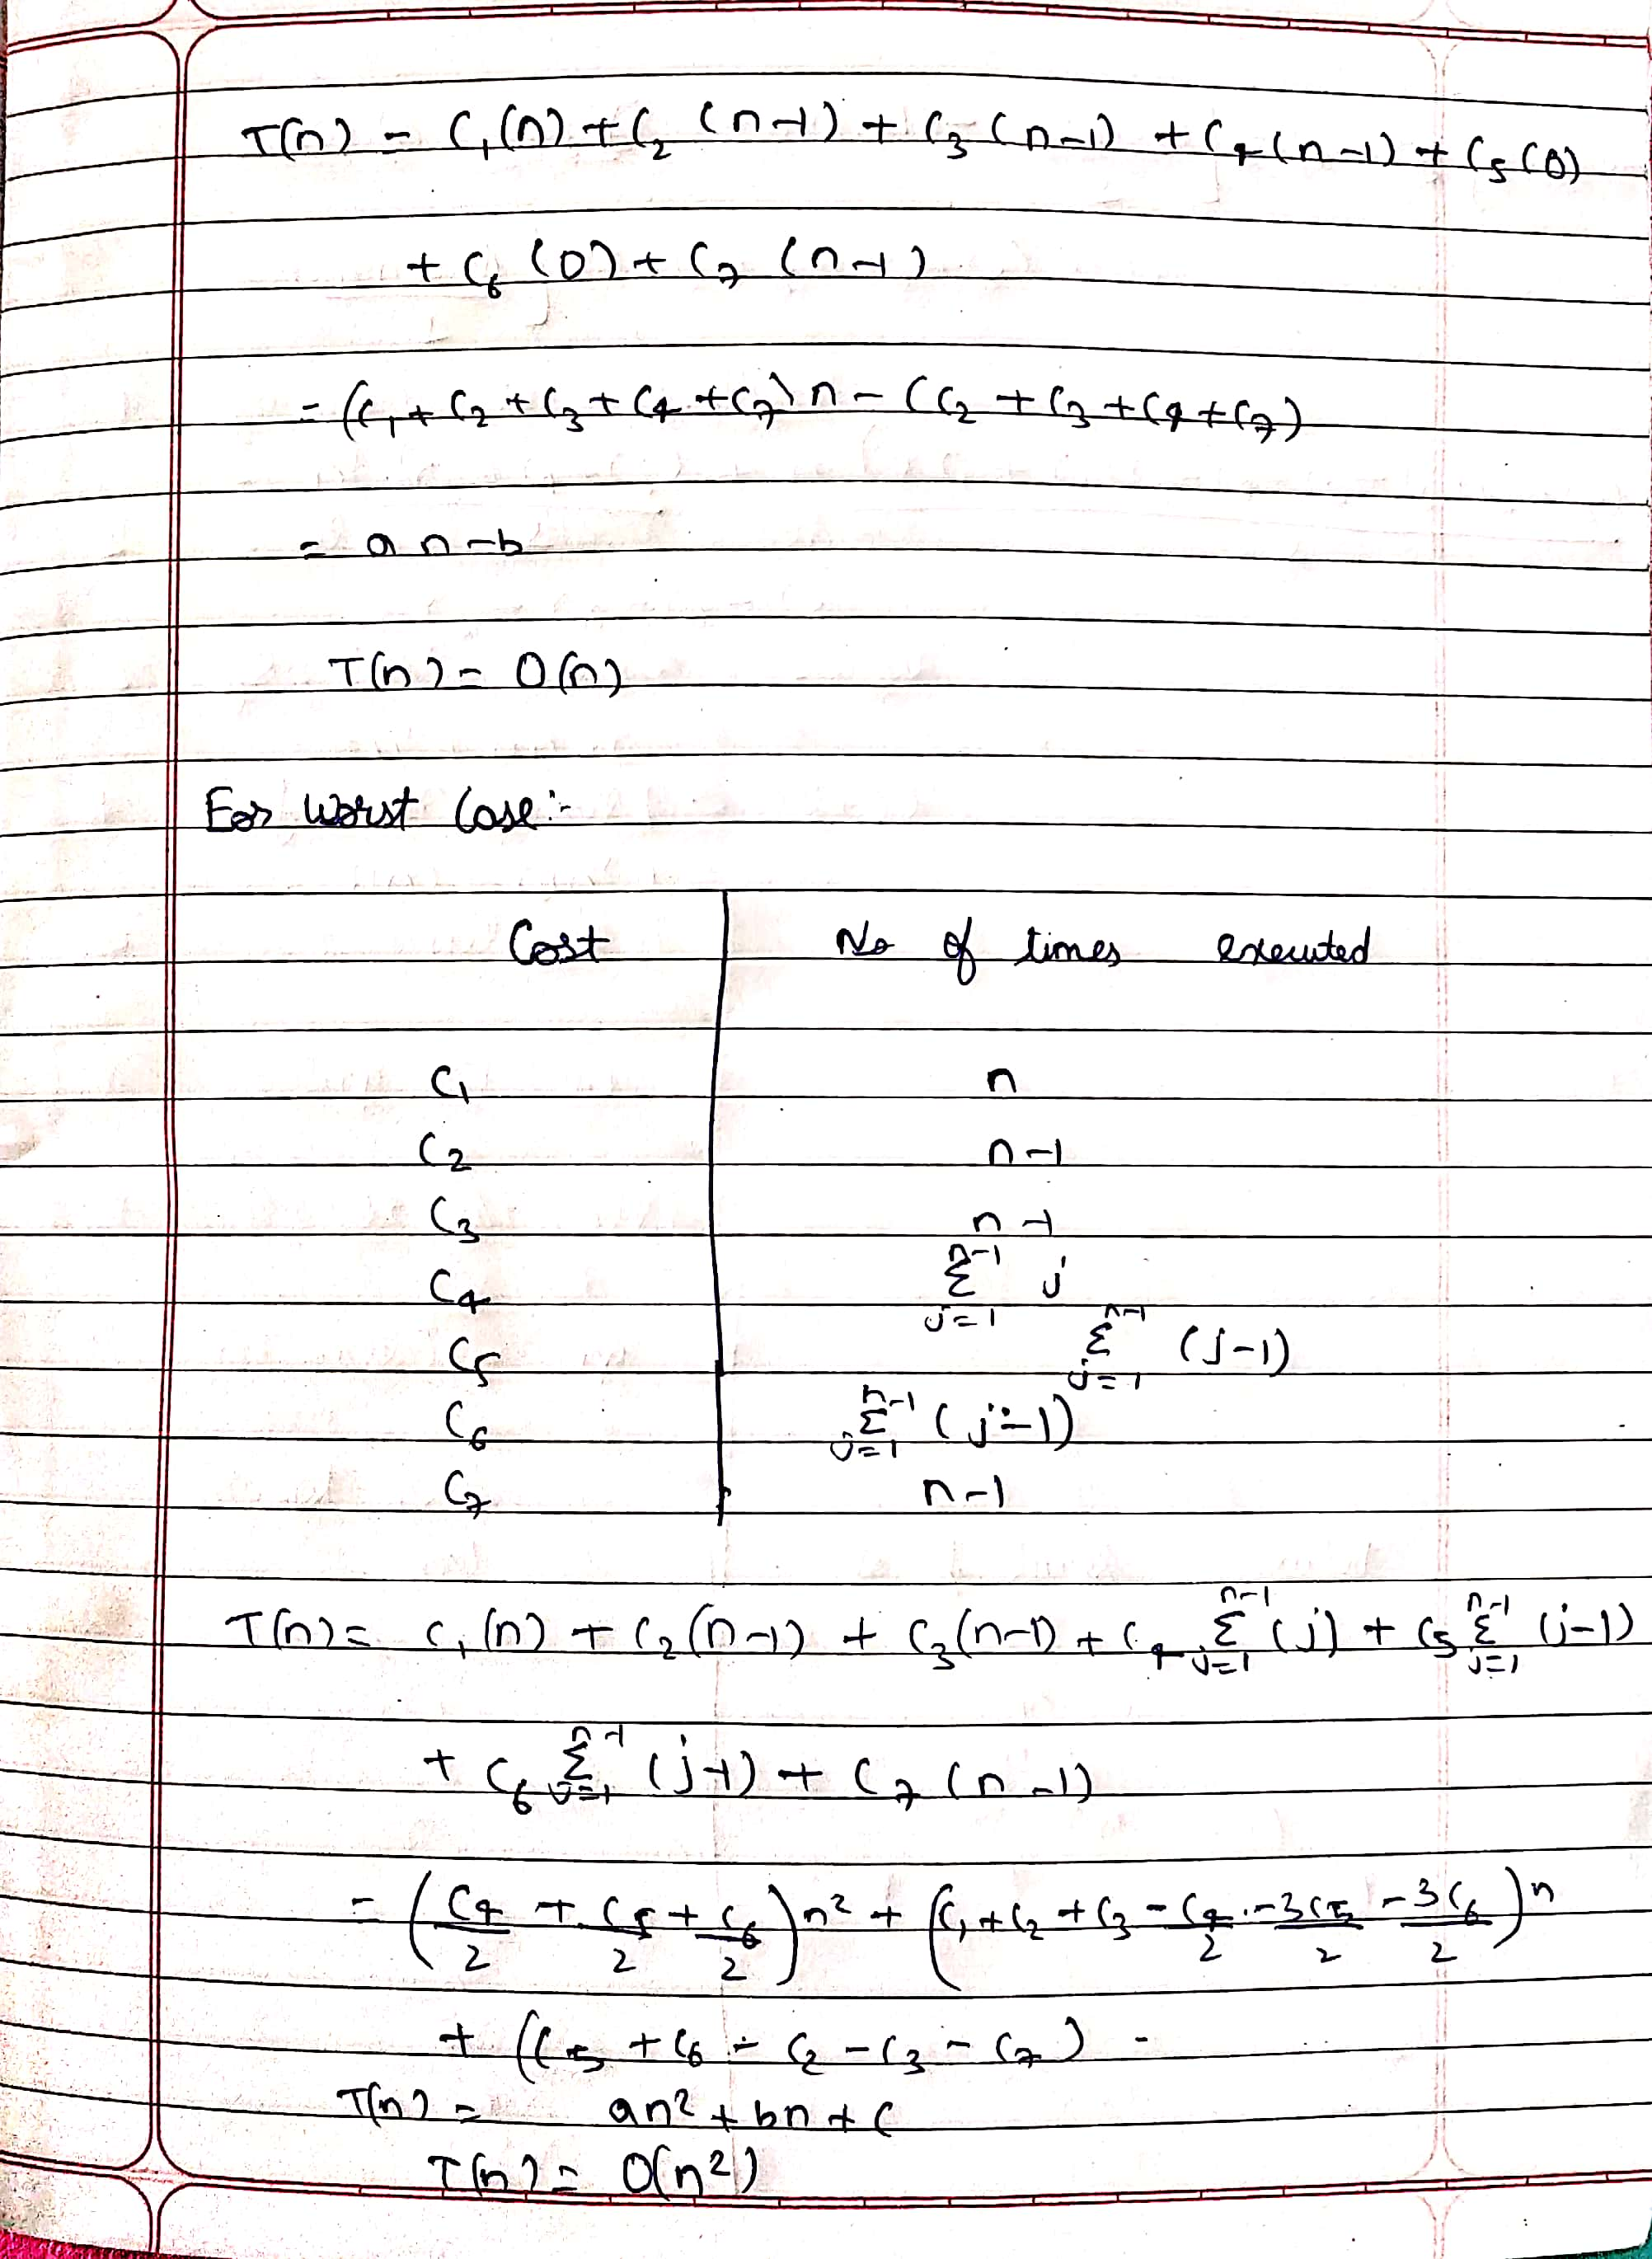 T(n) = C₁(n) + C₂ (n-1) + C₃ (n-1) + C₄(n-1) + C₅(0)
+ C₆ (0) + C₇ (n-1)
= (C₁ + C₂ + C₃ + C₄ + C₇) n - (C₂ + C₃ + C₄ + C₇)
= an-b
T(n) = O(n)
For Worst Case:-
Cost | No of times executed
C₁ | n
C₂ | n-1
C₃ | n-1
C₄ | Σ_{j=1}^{n-1} j
C₅ | Σ_{j=1}^{n-1} (j-1)
C₆ | Σ_{j=1}^{n-1} (j-1)
C₇ | n-1
T(n) = C₁(n) + C₂(n-1) + C₃(n-1) + C₄ Σ_{j=1}^{n-1} (j) + C₅ Σ_{j=1}^{n-1} (j-1)
+ C₆ Σ_{j=1}^{n-1} (j-1) + C₇ (n-1)
= (C₄/2 + C₅/2 + C₆/2) n² + (C₁ + C₂ + C₃ - C₄/2 - 3C₅/2 - 3C₆/2) n
+ (C₅ + C₆ - C₂ - C₃ - C₇)
T(n) = an² + bn + c
T(n) = O(n²)